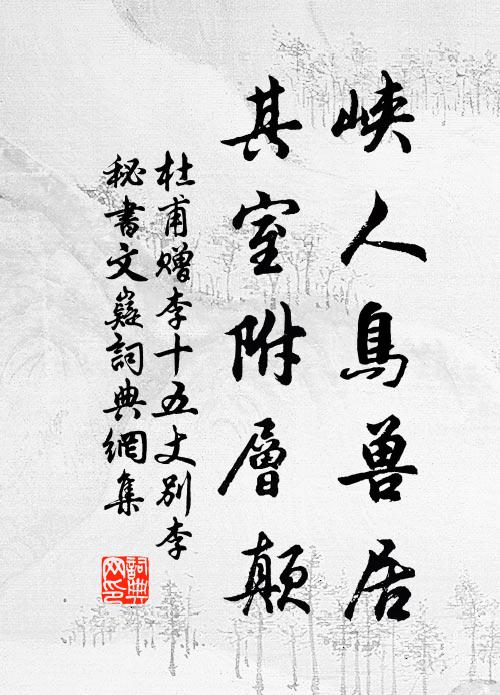 峡人鳥兽居
其室附層颠
杜甫赠李十五丈别李
秘書文嶷詞典網集
詞典网印